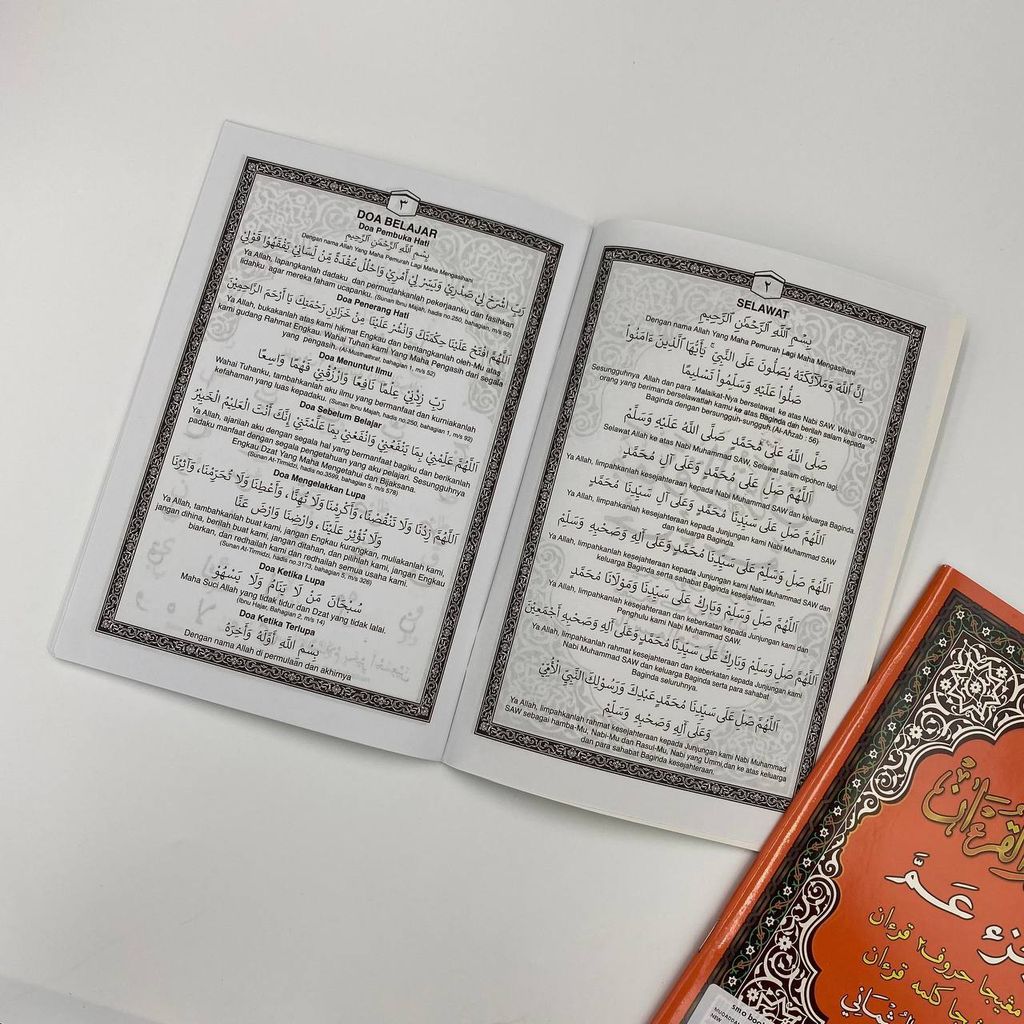 ٢
SELAWAT
بِسْمِ اللَّهِ الرَّحْمَٰنِ الرَّحِيمِ
Dengan nama Allah Yang Maha Pemurah Lagi Maha Mengasihani
إِنَّ اللَّهَ وَمَلَائِكَتَهُ يُصَلُّونَ عَلَى النَّبِيِّ ۚ يَا أَيُّهَا الَّذِينَ ءَامَنُواْ
صَلُّواْ عَلَيْهِ وَسَلِّمُواْ تَسْلِيمًا
Sesungguhnya Allah dan para Malaikat-Nya berselawat ke atas Nabi SAW. Wahai orang-
orang yang beriman berselawatlah kamu ke atas Baginda dan berilah salam kepada
Baginda dengan bersungguh-sungguh.(Al-Ahzab : 56)
صَلَّى اللَّهُ عَلَى مُحَمَّدٍ صَلَّى اللَّهُ عَلَيْهِ وَسَلَّمَ
Selawat Allah ke atas Nabi Muhammad SAW, Selawat salam dipohon lagi.
اَللَّهُمَّ صَلِّ عَلَى مُحَمَّدٍ وَعَلَى آلِ مُحَمَّدٍ
Ya Allah, limpahkanlah kesejahteraan kepada Nabi Muhammad SAW dan keluarga Baginda
اَللَّهُمَّ صَلِّ عَلَى سَيِّدِنَا مُحَمَّدٍ وَعَلَى آلِ سَيِّدِنَا مُحَمَّدٍ
Ya Allah, limpahkanlah kesejahteraan kepada Junjungan kami Nabi Muhammad SAW
dan keluarga Baginda
اَللَّهُمَّ صَلِّ وَسَلِّمْ عَلَى سَيِّدِنَا مُحَمَّدٍ وَعَلَى آلِهِ وَصَحْبِهِ وَسَلِّمْ
Ya Allah, limpahkanlah kesejahteraan kepada Junjungan kami Nabi Muhammad SAW dan
keluarga Baginda serta sahabat Baginda kesejahteraan.
اَللَّهُمَّ صَلِّ وَسَلِّمْ وَبَارِكْ عَلَى سَيِّدِنَا وَمَوْلَانَا مُحَمَّدٍ
Ya Allah, limpahkanlah kesejahteraan dan keberkatan kepada Junjungan kami dan
Penghulu kami Nabi Muhammad SAW.
اَللَّهُمَّ صَلِّ وَسَلِّمْ وَبَارِكْ عَلَى سَيِّدِنَا مُحَمَّدٍ وَعَلَى آلِهِ وَصَحْبِهِ أَجْمَعِيْنَ
Ya Allah, limpahkanlah rahmat kesejahteraan dan keberkatan kepada Junjungan kami
Nabi Muhammad SAW dan keluarga Baginda serta para sahabat
Baginda seluruhnya.
اَللَّهُمَّ صَلِّ عَلَى سَيِّدِنَا مُحَمَّدٍ عَبْدِكَ وَرَسُوْلِكَ النَّبِيِّ الْأُمِّيِّ
وَعَلَى آلِهِ وَصَحْبِهِ وَسَلِّمْ
Ya Allah, limpahkanlah rahmat kesejahteraan kepada Junjungan kami Nabi Muhammad
SAW sebagai hamba-Mu, Nabi-Mu dan Rasul-Mu, Nabi yang Ummi dan ke atas keluarga
dan para sahabat Baginda kesejahteraan.
٣
DOA BELAJAR
Doa Pembuka Hati
بِسْمِ اللَّهِ الرَّحْمَٰنِ الرَّحِيمِ
Dengan nama Allah Yang Maha Pemurah Lagi Maha Mengasihani
رَبِّ اشْرَحْ لِيْ صَدْرِيْ وَيَسِّرْ لِيْ أَمْرِيْ وَاحْلُلْ عُقْدَةً مِّنْ لِسَانِيْ يَفْقَهُوْا قَوْلِيْ
Ya Allah, lapangkanlah dadaku dan permudahkanlah pekerjaanku dan fasihkan
lidahku agar mereka faham ucapanku. (Sunan Ibnu Majah, hadis no.250, bahagian, m/s 92)
Doa Penerang Hati
اَللَّهُمَّ افْتَحْ عَلَيْنَا حِكْمَتَكَ وَانْشُرْ عَلَيْنَا مِنْ خَزَائِنِ رَحْمَتِكَ يَا أَرْحَمَ الرَّاحِمِيْنَ
Ya Allah, bukakanlah atas kami hikmat Engkau dan bentangkanlah oleh-Mu atas
kami gudang Rahmat Engkau. Wahai Tuhan kami Yang Maha Pengasih dari segala
yang pengasih. (Al-Musthathraf, bahagian 1, m/s 52)
Doa Menuntut Ilmu
رَبِّ زِدْنِيْ عِلْمًا نَافِعًا وَارْزُقْنِيْ فَهْمًا وَاسِعًا
Wahai Tuhanku, tambahkanlah aku ilmu yang bermanfaat dan kurniakanlah
kefahaman yang luas kepadaku. (Sunan Ibnu Majah, hadis no.250, bahagian 1, m/s 92)
Doa Sebelum Belajar
اَللَّهُمَّ عَلِّمْنِيْ بِمَا يَنْفَعُنِيْ وَانْفَعْنِيْ بِمَا عَلَّمْتَنِيْ إِنَّكَ أَنْتَ الْعَلِيْمُ الْخَبِيْرُ
Ya Allah, ajarilah aku dengan segala hal yang bermanfaat bagiku dan berikanlah
padaku manfaat dengan segala pengetahuan yang aku pelajari. Sesungguhnya
Engkau Dzat Yang Maha Mengetahui dan Bijaksana.
(Sunan At-Tirmidzi, hadis no.3599, bahagian 5, m/s 578)
Doa Mengelakkan Lupa
اَللَّهُمَّ زِدْنَا وَلَا تَنْقُصْنَا، وَأَكْرِمْنَا وَلَا تُهِنَّا، وَأَعْطِنَا وَلَا تَحْرِمْنَا، وَآثِرْنَا
وَلَا تُؤْثِرْ عَلَيْنَا ، وَارْضِنَا وَارْضَ عَنَّا
Ya Allah, tambahkanlah buat kami, jangan Engkau kurangkan, muliakanlah kami,
jangan dihina, berilah buat kami, jangan ditahan, dan pilihlah kami, jangan Engkau
biarkan, dan redhailah kami dan redhailah semua usaha kami.
(Sunan At-Tirmidzi, hadis no.3173, bahagian 5, m/s 326)
Doa Ketika Lupa
سُبْحَانَ مَنْ لَا يَنَامُ وَلَا يَسْهُوْ
Maha Suci Allah yang tidak tidur dan Dzat yang tidak lalai.
(Ibnu Hajar, Bahagian 2, m/s 14)
Doa Ketika Terlupa
بِسْمِ اللَّهِ أَوَّلَهُ وَآخِرَهُ
Dengan nama Allah di permulaan dan akhirnya
القرءان
جزء عَمَّ
مڠيجا حروف٢ قرءان
كلمه قرءان
smo book
MUQADDAM
NEW